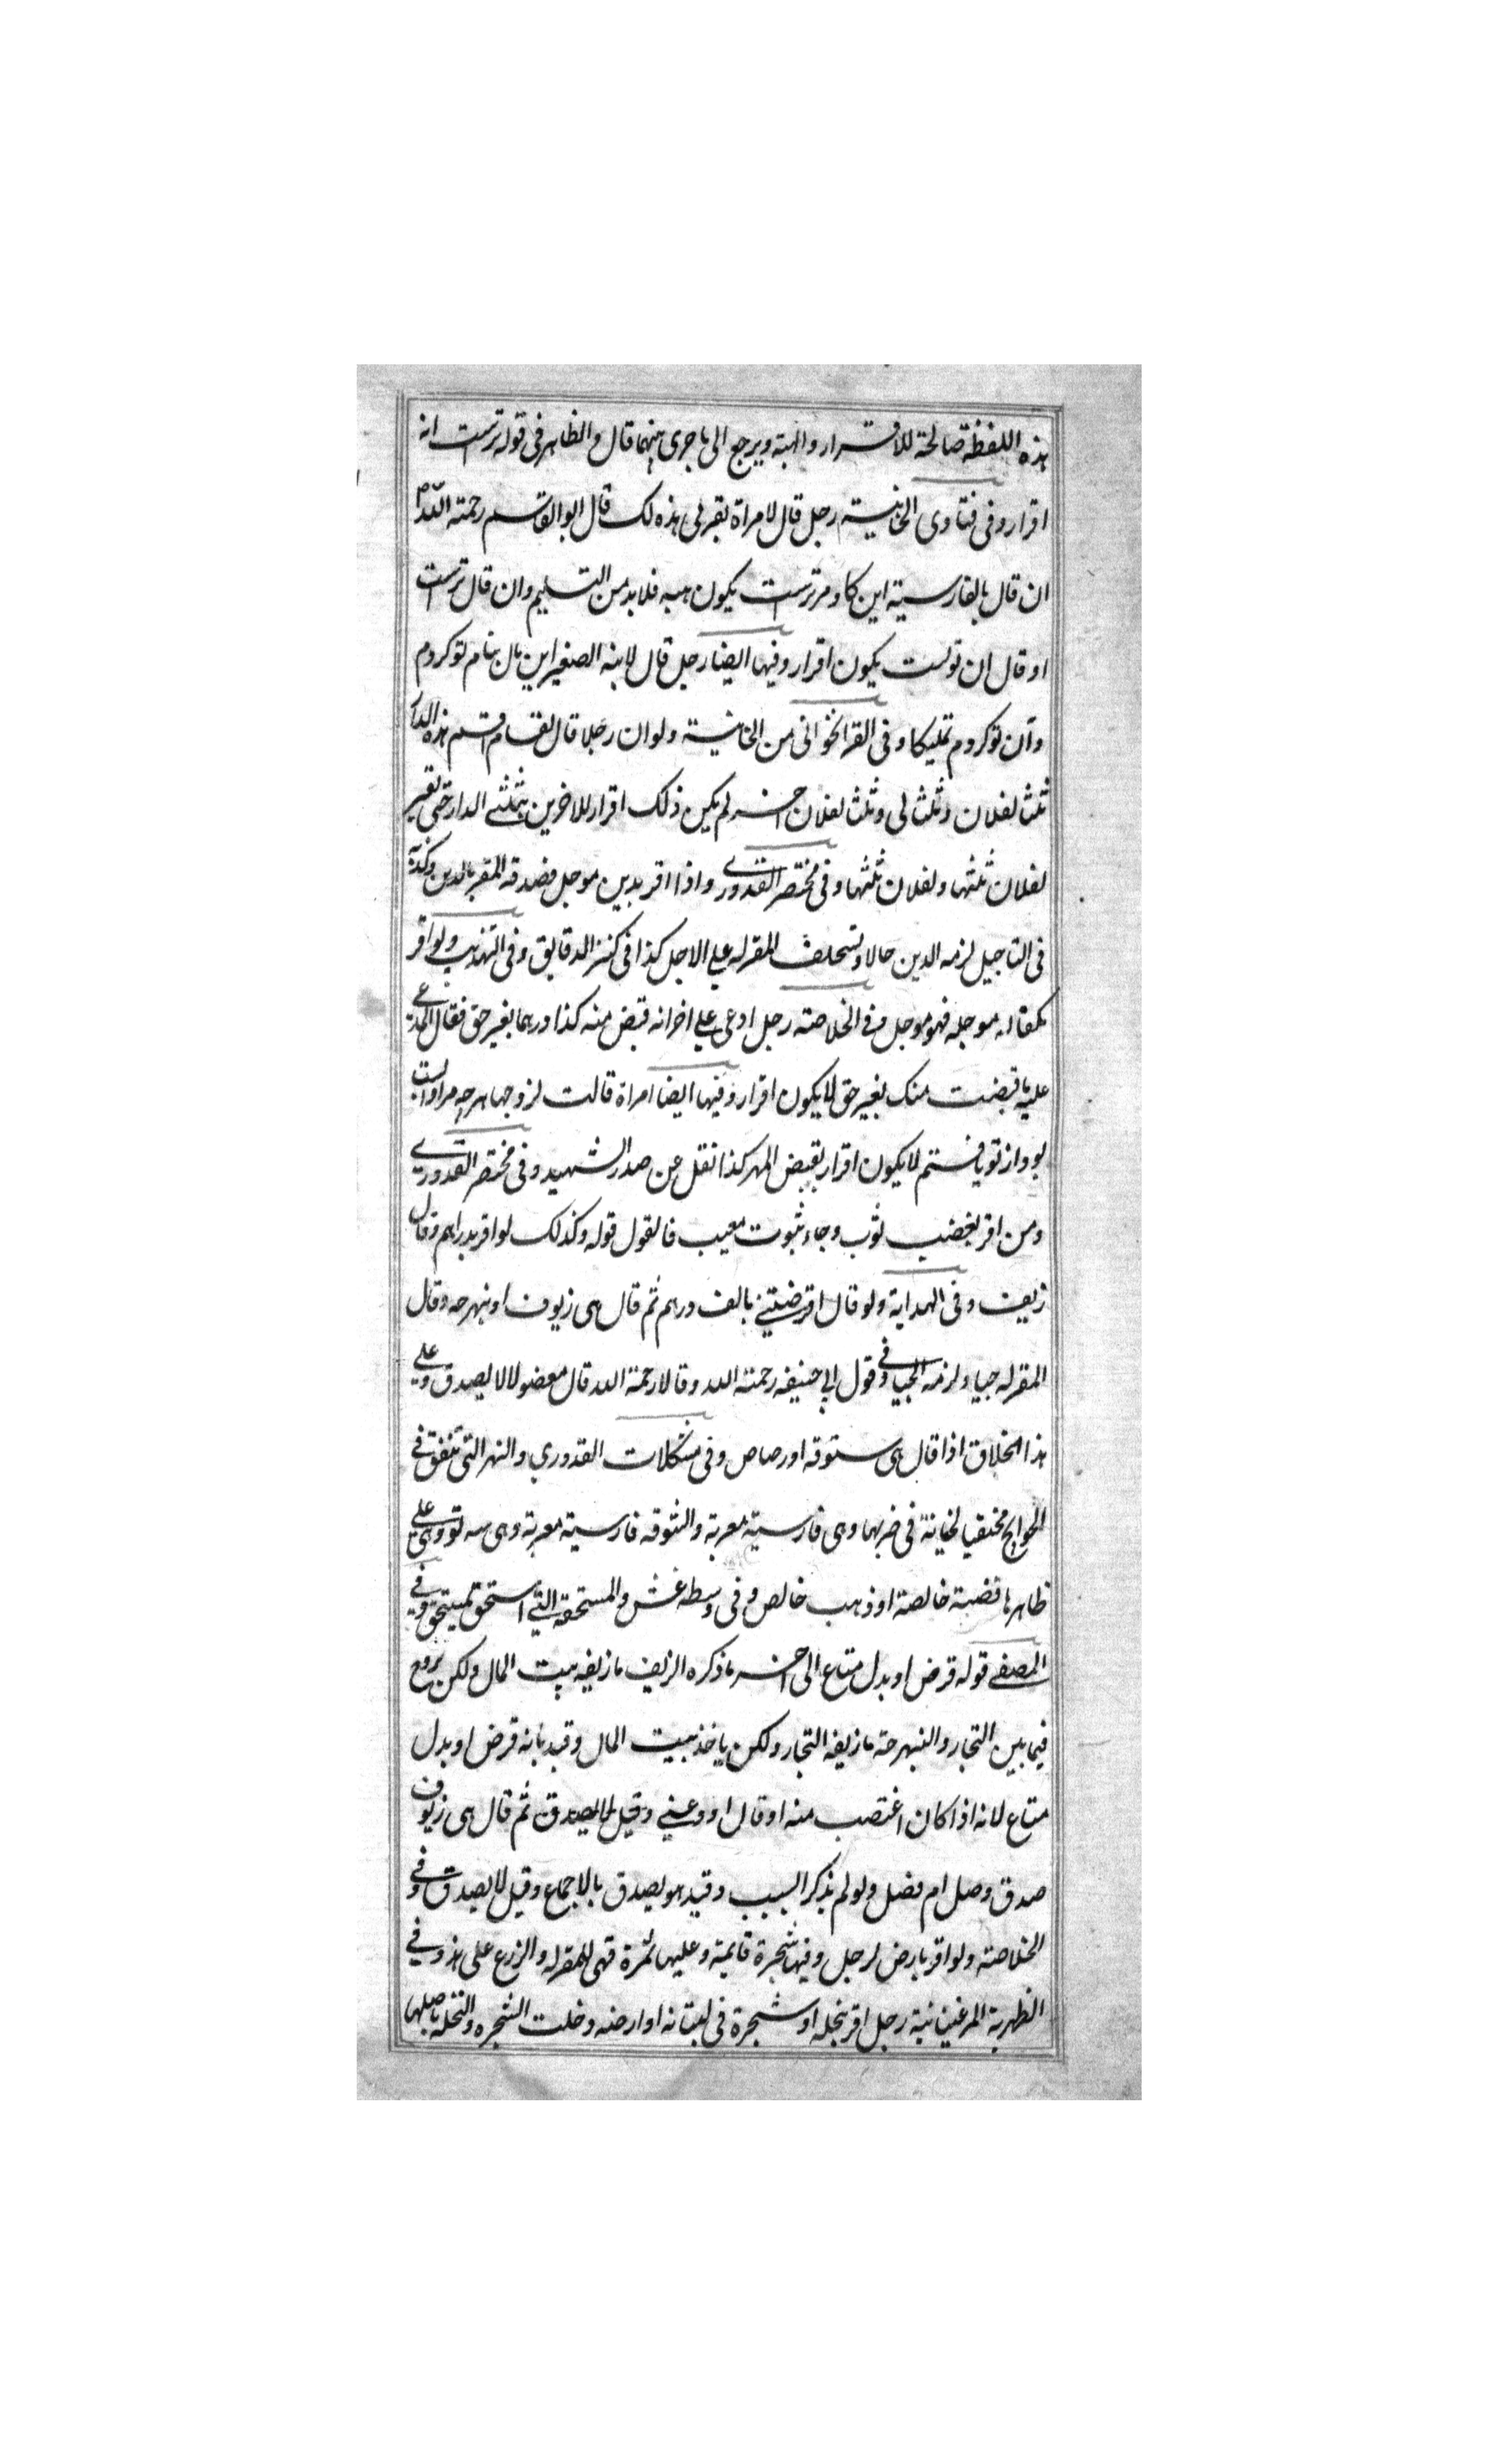 هذه اللفظة صالحة للاقرار والهبة ويرجع الى ما جرى بينهما قال والظاهر فى قوله تراست انه
اقرار وفى فتاوى الخانية رجل قال لامراة بقرلى هذه لك قال ابو القاسم رحمة الله
ان قال بالفارسية اين كاو مر تراست يكون هبه فلا بد من التسليم وان قال تراست
او قال ان تو است يكون اقرار وفيها ايضا رجل قال لابنه الصغير اين مال بنام تو كردم
وآن تو كردم تمليكا وفى من الخانية ولو ان رجلا قال لقسام اقسم هذه الدار
ثلث لفلان وثلث لى وثلث لفلان اخر لم يكن ذلك اقرار للاخرين بثلثى الدار حتى
لفلان ثلثها ولفلان ثلثها وفى مختصر القدورى واذا اقر بدين موجل فصدقه المقر بالدين وكذبه
فى التاجيل لزمه الدين حالا ويستحلف المقر له على الاجل كذا فى كنز الدقايق وفى التهذيب ولو اقر
بكفاله موجله فهو موجل وفى الخلاصته رجل ادعى على اخر انه قبض منه كذا درهما بغير حق فقال المدعى
عليه ما قبضت منك بغير حق لا يكون اقرار وفيها ايضا امراة قالت لزوجها هرچه مرا
بود از تو يافتم لا يكون اقرار بقبض المهر كذا نقل عن صدر الشهيد وفى مختصر القدورى
ومن اقر بغصب ثوب وجاء بثوب معيب فالقول قوله وكذلك لو اقر بدراهم وقال
زيف وفى الهداية ولو قال اقرضتنى بالف درهم ثم قال هى زيوف او نبهرجه وقال
المقر له جياد لزمه الجياد فى قول ابى حنيفه رحمة الله وقالا رحمة الله قال مفصولا لا يصدق وعلى
هذا الخلاف اذا قال هى ستوقه او رصاص وفى مشكلات القدوري التى تنفق فى
الحوايج فى ضربهما وهى فارسية معربة والستوقه فارسية معربة وهى سه تو وهى على
ظاهرها فضة خالصة او ذهب خالص وفى وسطه غش والمستحقه التى وفى
المصفى قوله قرض او بدل متاع الى اخره ما ذكره الزيف ما زيفه بيت المال ولكن يروج
فيما بين التجار والنبهرجة ما زيفه التجار ولكن ياخذ ببيت المال وقيد بانه قرض او بدل
متاع لانه اذا كان اغتصب منه او قال اودعنى وقيل لا يصدق ثم قال هى زيوف
صدق وصل ام فصل ولو لم يذكر السبب وقيد هو يصدق بالاجماع وقيل لا يصدق وفى
الخلاصته ولو اقر بارض لرجل وفيها شجرة قايمة وعليها ثمرة فهى للمقر له والزرع على هذا وفى
الظهرية المرغينانية رجل اقر بنخله او شجرة فى بستانه او ارضه دخلت الشجره والنخله باصلها